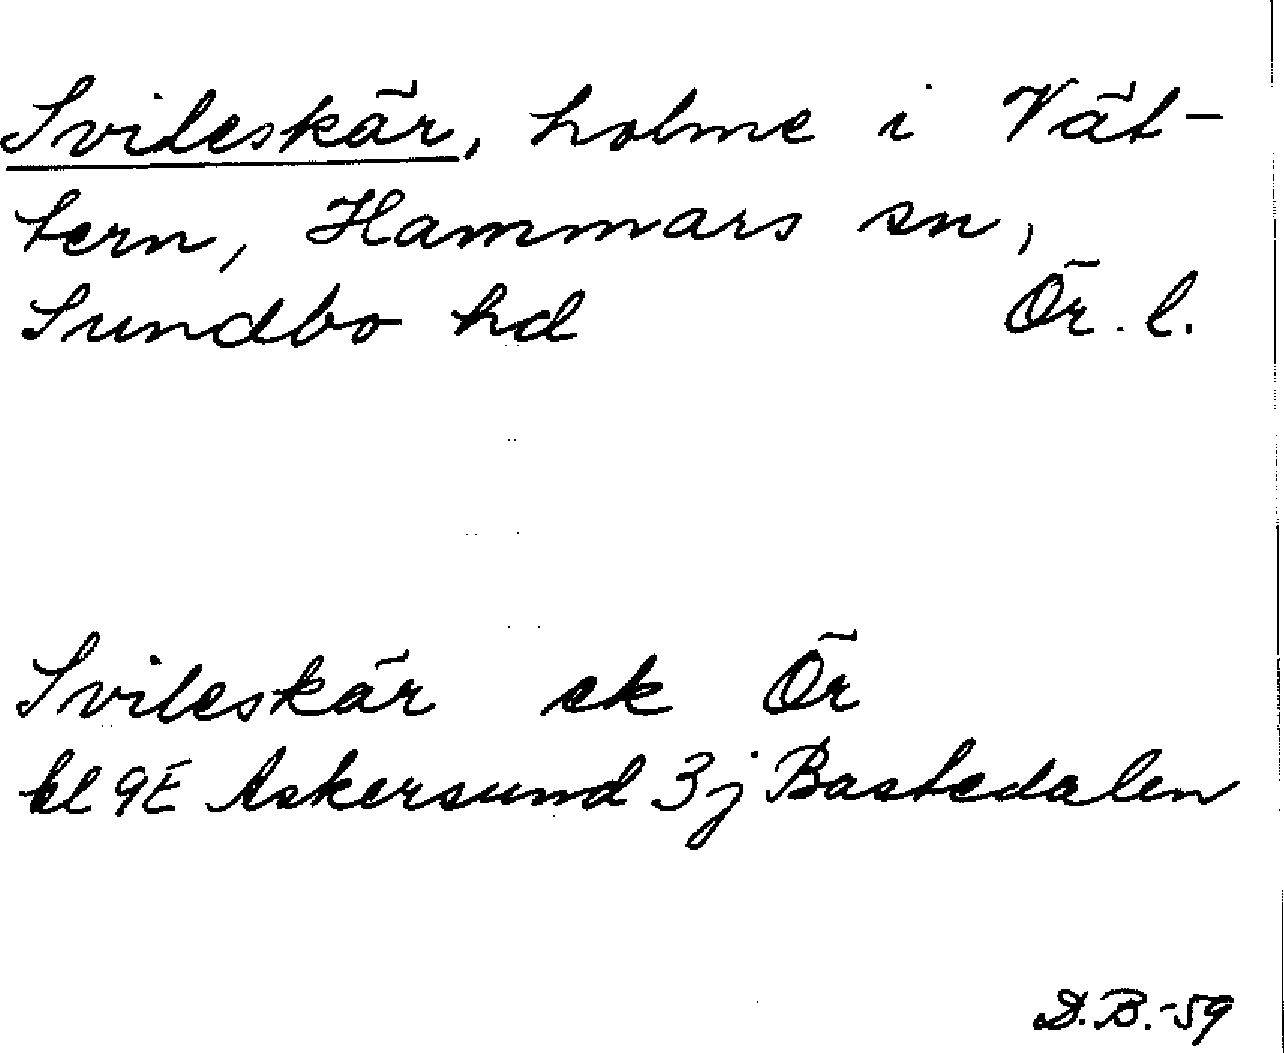 Svileskär, holme i Vät-
tern, Hammars sn,
Sundbo hd Ör. l.
Svileskär ek Ör
bl 9E Askersund 3j Bastedalen
D.B.-59